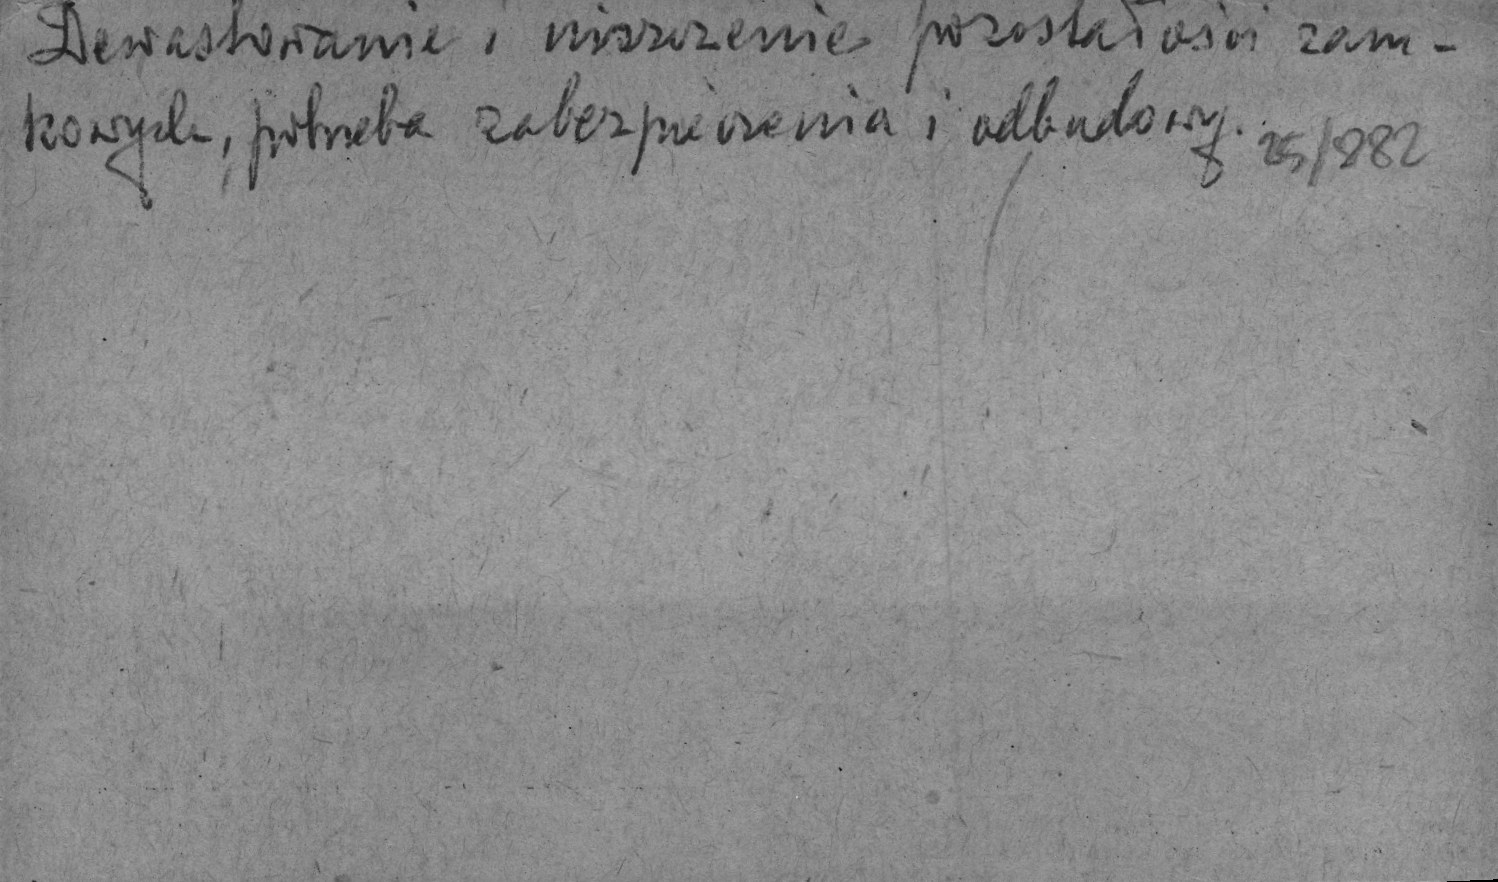 Dewastowanie i niszczenie pozostałości zam-
kowych, potrzeba zabezpieczenia i odbudowy. 25/882